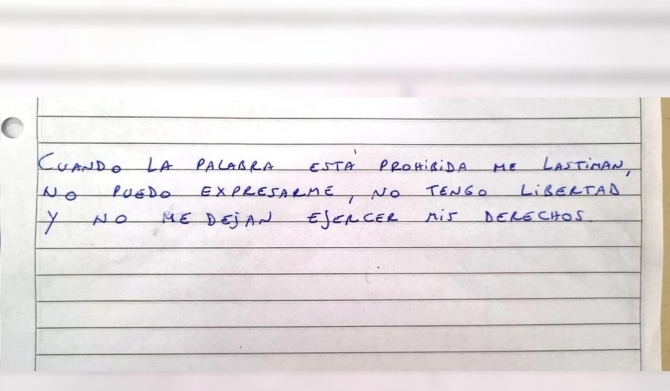 CUANDO LA PALABRA ESTÁ PROHIBIDA ME LASTIMAN,
NO PUEDO EXPRESARME, NO TENGO LIBERTAD
Y NO ME DEJAN EJERCER MIS DERECHOS.